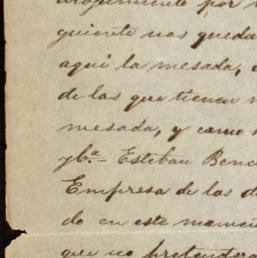 por
guiente nos queda
aqui la mesada,
de las que tienen
mesada, y como
Esteban Bene
Empresa de las d
do en este mamen
que no pretendera